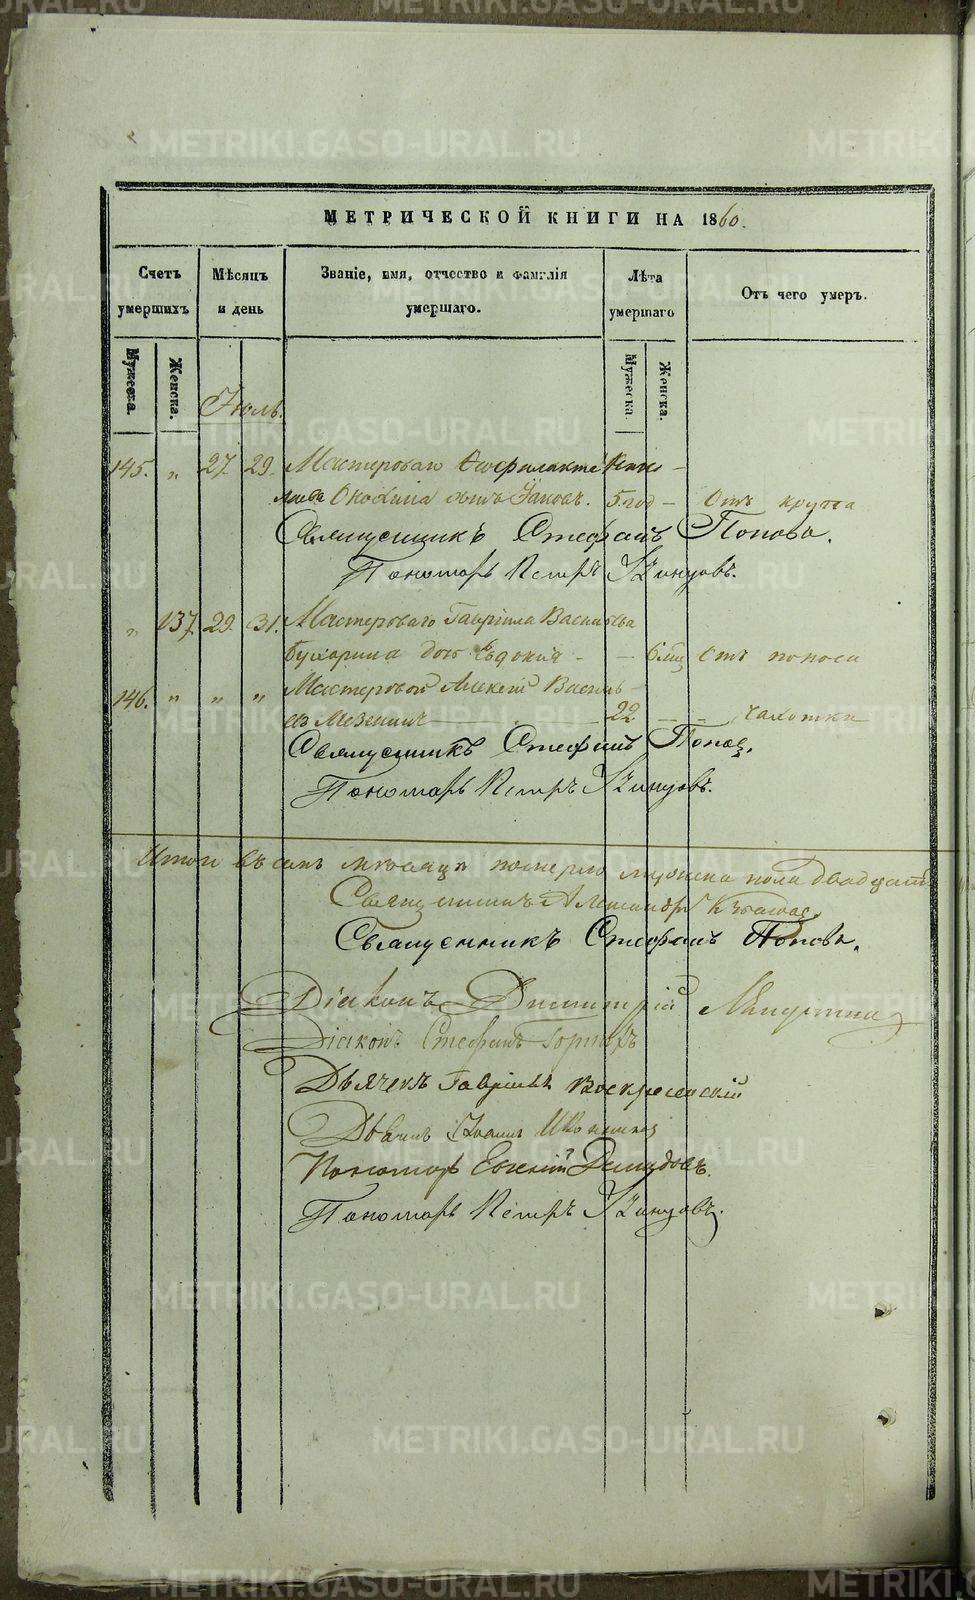 МЕТРИЧЕСКОЙ КНИГИ НА 1860.
Счетъ умершихъ
Мѣсяцъ и день
Званіе, имя, отчество и фамилія умершаго.
Лѣта умершаго
Отъ чего умеръ.
Мужеска.
Женска.
Мужеска.
Женска.
Іюль.
145. „ 27. 29. Мастероваго Феофилакта
сынъ Іаковъ. 5 год — Отъ крупа
Священникъ Стефанъ Поповъ.
Пономарь Петръ
„ 137. 29. 31. Мастероваго Гавріила Васильева
Бухарина дочь Евдокія — — 6 мѣс Отъ поноса
146. „ „ „ Мастеровой Алексей Василь-
евъ Мезенинъ — 22 — — чахотки
Священникъ Стефанъ Поповъ.
Пономарь Петръ
Итого въ семъ мѣсяцѣ померло мужеска пола двадцать
Священникъ Александръ
Священникъ Стефанъ Поповъ.
Діаконъ Димитрій
Діаконъ Стефанъ
Дьячекъ Гавріилъ Воскресенскій
Дьячекъ Іоаннъ
Пономарь Евгеній Демидовъ.
Пономарь Петръ
METRIKI.GASO-URAL.RU